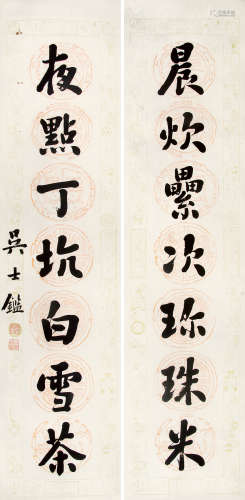 晨炊纍次珎珠米
夜點丁坑白雪茶
吳士鑑